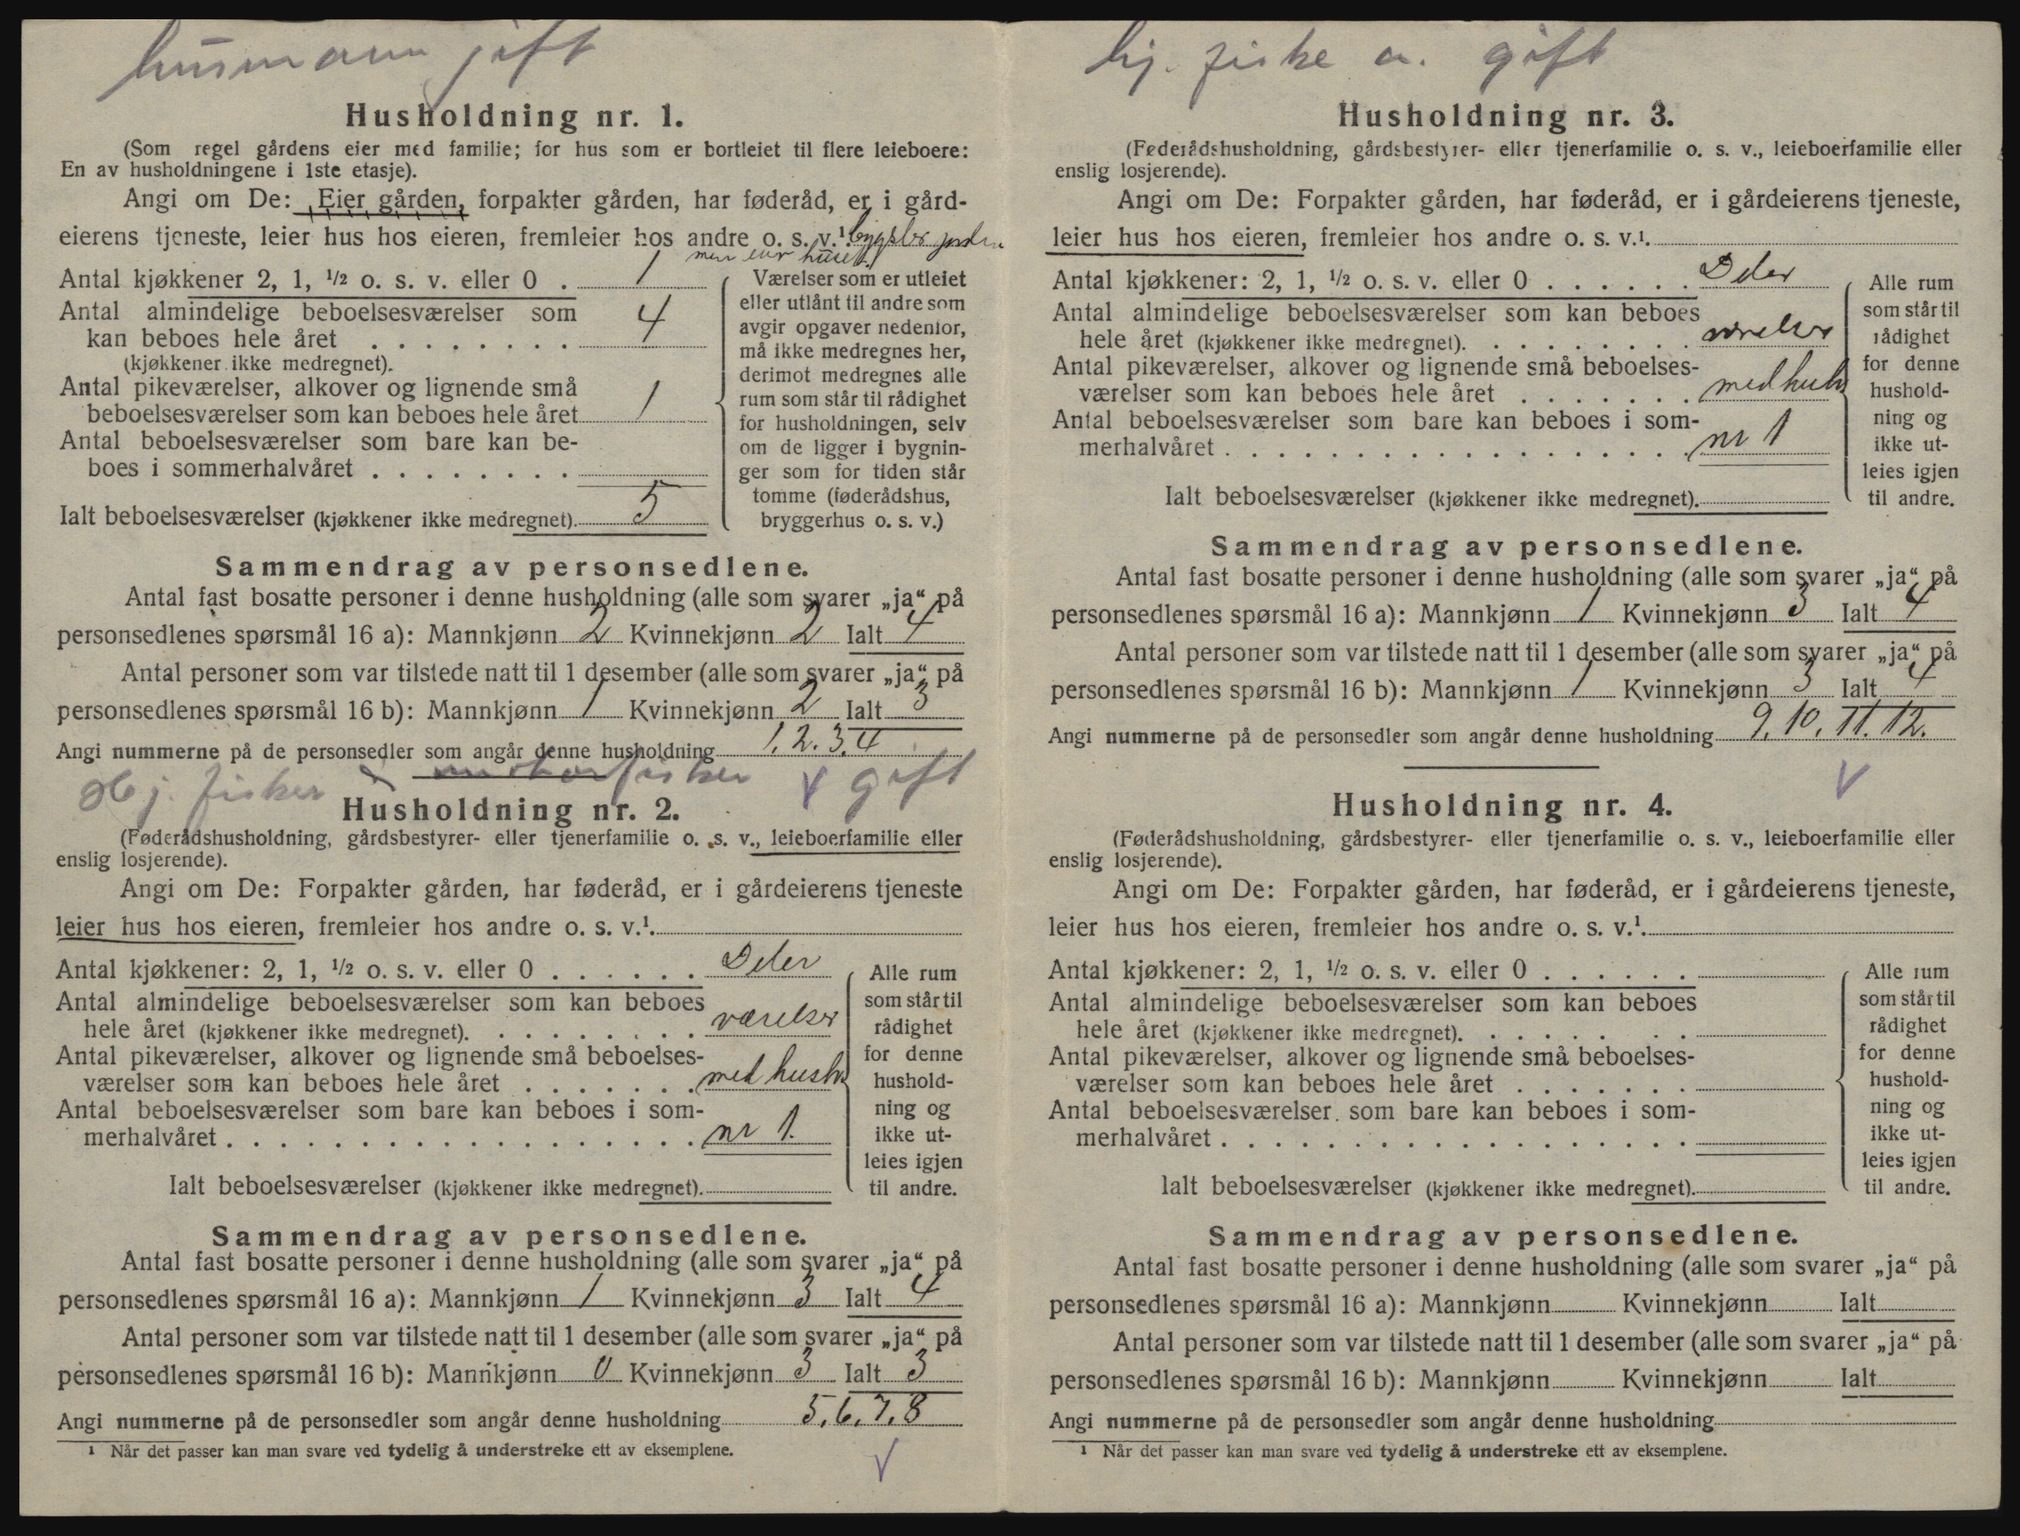 husmann gift
Husholdning nr. 1.
(Som regel gårdens eier med familie; for hus som er bortleiet til flere leieboere:
En av husholdningene i 1ste etasje).
Angi om De: Eier gården, forpakter gården, har føderåd, er i gård-
eierens tjeneste, leier hus hos eieren, fremleier hos andre o. s. v.¹ bygsler jorden
men eier huset
Antal kjøkkener 2, 1, ½ o. s. v. eller 0 . 1
Antal almindelige beboelsesværelser som
kan beboes hele året . . . . . . . . 4
(kjøkkener ikke medregnet).
Antal pikeværelser, alkover og lignende små
beboelsesværelser som kan beboes hele året 1
Antal beboelsesværelser som bare kan be-
boes i sommerhalvåret . . . . . . . .
Ialt beboelsesværelser (kjøkkener ikke medregnet). 5
Værelser som er utleiet
eller utlånt til andre som
avgir opgaver nedenfor,
må ikke medregnes her,
derimot medregnes alle
rum som står til rådighet
for husholdningen, selv
om de ligger i bygnin-
ger som for tiden står
tomme (føderådshus,
bryggerhus o. s. v.)
Sammendrag av personsedlene.
Antal fast bosatte personer i denne husholdning (alle som svarer „ja“ på
personsedlenes spørsmål 16 a): Mannkjønn 2 Kvinnekjønn 2 Ialt 4
Antal personer som var tilstede natt til 1 desember (alle som svarer „ja“ på
personsedlenes spørsmål 16 b): Mannkjønn 1 Kvinnekjønn 2 Ialt 3
Angi nummerne på de personsedler som angår denne husholdning 1. 2. 3. 4
hj. fisker fisker v gift
Husholdning nr. 2.
(Føderådshusholdning, gårdsbestyrer- eller tjenerfamilie o. s. v., leieboerfamilie eller
enslig losjerende).
Angi om De: Forpakter gården, har føderåd, er i gårdeierens tjeneste
leier hus hos eieren, fremleier hos andre o. s. v.¹.
Antal kjøkkener: 2, 1, ½ o. s. v. eller 0 . . . . . . Deler
Antal almindelige beboelsesværelser som kan beboes
hele året (kjøkkener ikke medregnet). . . . . . . . . værelser
Antal pikeværelser, alkover og lignende små beboelses-
værelser som kan beboes hele året . . . . . . . med hush
Antal beboelsesværelser som bare kan beboes i som-
merhalvåret . . . . . . . . . . . . . . . . . . nr 1.
Ialt beboelsesværelser (kjøkkener ikke medregnet).
Alle rum
som står til
rådighet
for denne
hushold-
ning og
ikke ut-
leies igjen
til andre.
Sammendrag av personsedlene.
Antal fast bosatte personer i denne husholdning (alle som svarer „ja“ på
personsedlenes spørsmål 16 a): Mannkjønn 1 Kvinnekjønn 3 Ialt 4
Antal personer som var tilstede natt til 1 desember (alle som svarer „ja“ på
personsedlenes spørsmål 16 b): Mannkjønn 0 Kvinnekjønn 3 Ialt 3
Angi nummerne på de personsedler som angår denne husholdning 5. 6. 7. 8
¹ Når det passer kan man svare ved tydelig å understreke ett av eksemplene.
v
hj. fiske a. gift
Husholdning nr. 3.
(Føderådshusholdning, gårdsbestyrer- eller tjenerfamilie o. s. v., leieboerfamilie eller
enslig losjerende).
Angi om De: Forpakter gården, har føderåd, er i gårdeierens tjeneste,
leier hus hos eieren, fremleier hos andre o. s. v.¹.
Antal kjøkkener: 2, 1, ½ o. s. v. eller 0 . . . . . . Deler
Antal almindelige beboelsesværelser som kan beboes
hele året (kjøkkener ikke medregnet). . . . . . . . . værelser
Antal pikeværelser, alkover og lignende små beboelses-
værelser som kan beboes hele året . . . . . . . med hush
Antal beboelsesværelser som bare kan beboes i som-
merhalvåret . . . . . . . . . . . . . . . . . . nr 1
Ialt beboelsesværelser (kjøkkener ikke medregnet).
Alle rum
som står til
rådighet
for denne
hushold-
ning og
ikke ut-
leies igjen
til andre.
Sammendrag av personsedlene.
Antal fast bosatte personer i denne husholdning (alle som svarer „ja“ på
personsedlenes spørsmål 16 a): Mannkjønn 1 Kvinnekjønn 3 Ialt 4
Antal personer som var tilstede natt til 1 desember (alle som svarer „ja“ på
personsedlenes spørsmål 16 b): Mannkjønn 1 Kvinnekjønn 3 Ialt 4
Angi nummerne på de personsedler som angår denne husholdning 9. 10. 11. 12.
v
Husholdning nr. 4.
(Føderådshusholdning, gårdsbestyrer- eller tjenerfamilie o. s. v., leieboerfamilie eller
enslig losjerende).
Angi om De: Forpakter gården, har føderåd, er i gårdeierens tjeneste,
leier hus hos eieren, fremleier hos andre o. s. v.¹.
Antal kjøkkener: 2, 1, ½ o. s. v. eller 0 . . . . . .
Antal almindelige beboelsesværelser som kan beboes
hele året (kjøkkener ikke medregnet). . . . . . . . .
Antal pikeværelser, alkover og lignende små beboelses-
værelser som kan beboes hele året . . . . . . .
Antal beboelsesværelser som bare kan beboes i som-
merhalvåret . . . . . . . . . . . . . . . . . .
Ialt beboelsesværelser (kjøkkener ikke medregnet).
Alle rum
som står til
rådighet
for denne
hushold-
ning og
ikke ut-
leies igjen
til andre.
Sammendrag av personsedlene.
Antal fast bosatte personer i denne husholdning (alle som svarer „ja“ på
personsedlenes spørsmål 16 a): Mannkjønn Kvinnekjønn Ialt
Antal personer som var tilstede natt til 1 desember (alle som svarer „ja“ på
personsedlenes spørsmål 16 b): Mannkjønn Kvinnekjønn Ialt
Angi nummerne på de personsedler som angår denne husholdning
¹ Når det passer kan man svare ved tydelig å understreke ett av eksemplene.